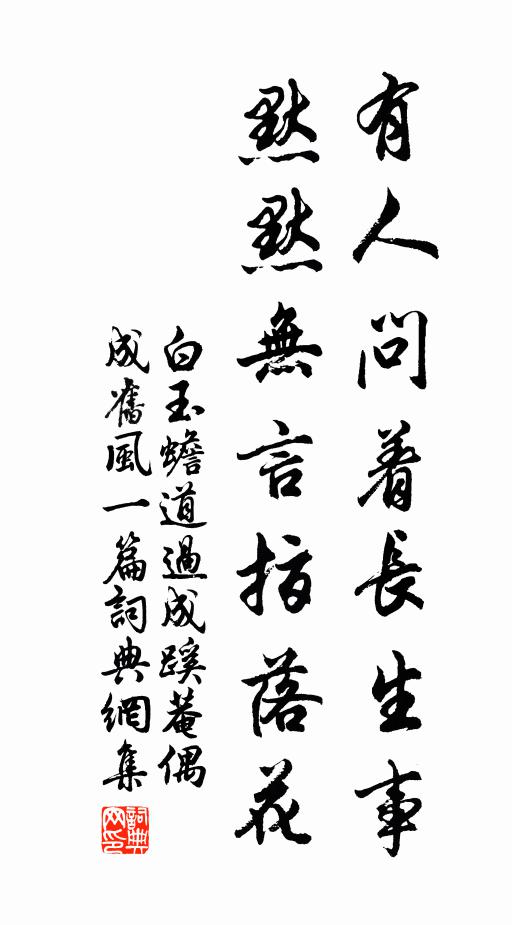 有人問着長生事
默默無言指落花
白玉蟾道過成蹊菴偶
成舊風一篇詞典網集
詞典网印